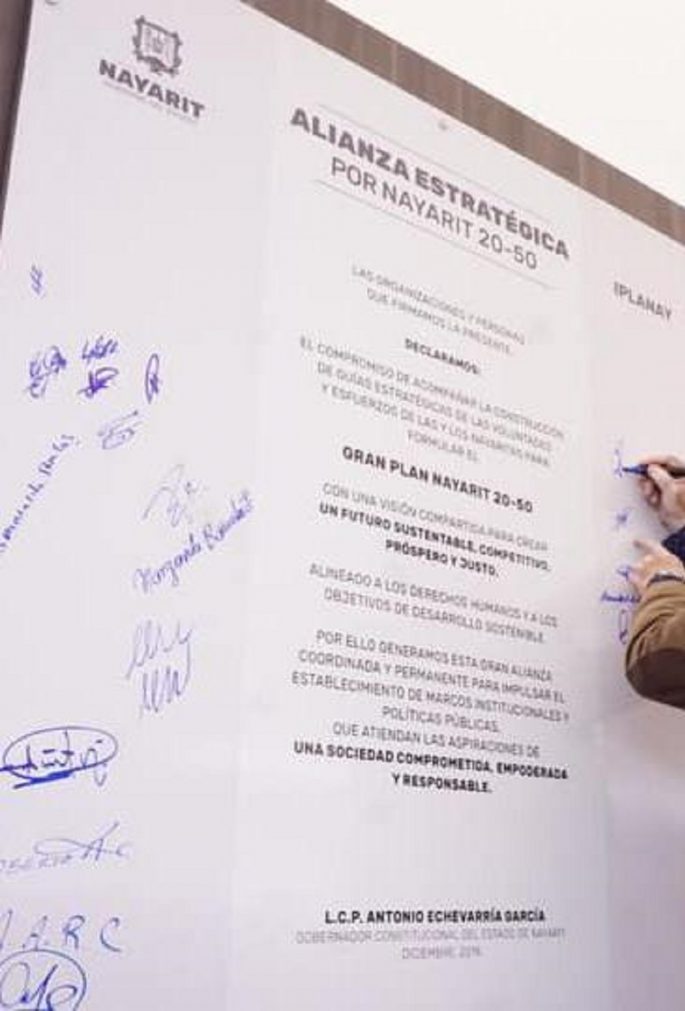 NAYARIT
ALIANZA ESTRATÉGICA
POR NAYARIT 20-50
IPLANAY
LAS ORGANIZACIONES Y PERSONAS
QUE FIRMAMOS LA PRESENTE,
DECLARAMOS:
EL COMPROMISO DE ACOMPAÑAR LA CONSTRUCCIÓN
DE GUÍAS ESTRATÉGICAS DE LAS VOLUNTADES
Y ESFUERZOS DE LAS Y LOS NAYARITAS PARA
FORMULAR EL
GRAN PLAN NAYARIT 20-50
CON UNA VISIÓN COMPARTIDA PARA CREAR
UN FUTURO SUSTENTABLE, COMPETITIVO,
PRÓSPERO Y JUSTO,
ALINEADO A LOS DERECHOS HUMANOS Y A LOS
OBJETIVOS DE DESARROLLO SOSTENIBLE.
POR ELLO GENERAMOS ESTA GRAN ALIANZA
COORDINADA Y PERMANENTE PARA IMPULSAR EL
ESTABLECIMIENTO DE MARCOS INSTITUCIONALES Y
POLÍTICAS PÚBLICAS,
QUE ATIENDAN LAS ASPIRACIONES DE
UNA SOCIEDAD COMPROMETIDA, EMPODERADA
Y RESPONSABLE.
L.C.P. ANTONIO ECHEVARRÍA GARCÍA
GOBERNADOR CONSTITUCIONAL DEL ESTADO DE NAYARIT
DICIEMBRE,
A.R C